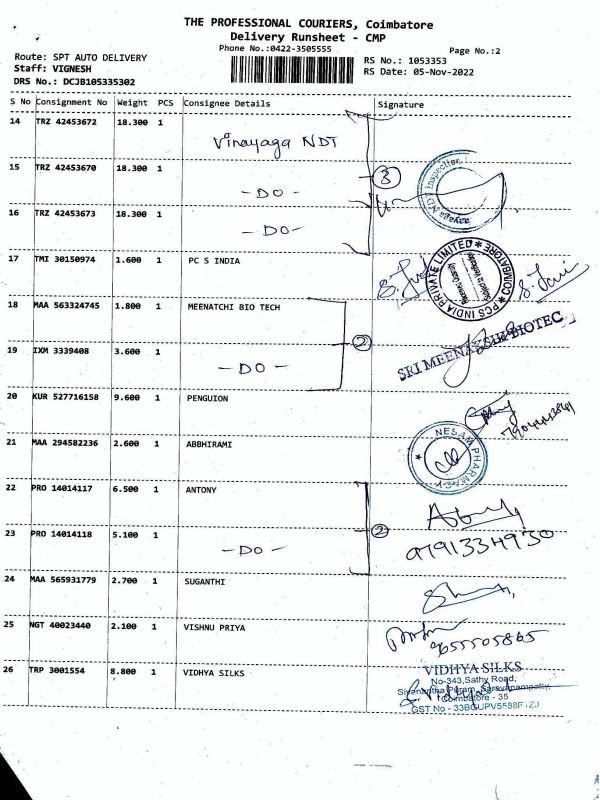 THE PROFESSIONAL COURIERS, Coimbatore
Delivery Runsheet - CMP
Phone No.:0422-3505555
Page No.:2
Route: SPT AUTO DELIVERY
Staff: VIGNESH
DRS No.: DCJB105335302
RS No.: 1053353
RS Date: 05-Nov-2022
S No Consignment No Weight PCS Consignee Details Signature
14 TRZ 42453672 18.300 1 Vinayaga NDT
15 TRZ 42453670 18.300 1 -DO-
3
16 TRZ 42453673 18.300 1 -DO-
17 TMI 30150974 1.600 1 PC S INDIA
PCS INDIA PRIVATE LIMITED * COIMBATORE *
18 MAA 563324745 1.800 1 MEENATCHI BIO TECH
2
SRI MEENAKSHI BIOTEC
19 IXM 3339408 3.600 1 -DO-
20 KUR 527716158 9.600 1 PENGUION
21 MAA 294582236 2.600 1 ABBHIRAMI
NESAM PHARMACY
22 PRO 14014117 6.500 1 ANTONY
2
23 PRO 14014118 5.100 1 -DO-
9791334930
24 MAA 565931779 2.700 1 SUGANTHI
25 NGT 40023440 2.100 1 VISHNU PRIYA
9655505865
26 TRP 3001554 8.800 1 VIDHYA SILKS
VIDHYA SILKS
No-343,Sathy Road,
Coimbatore - 35